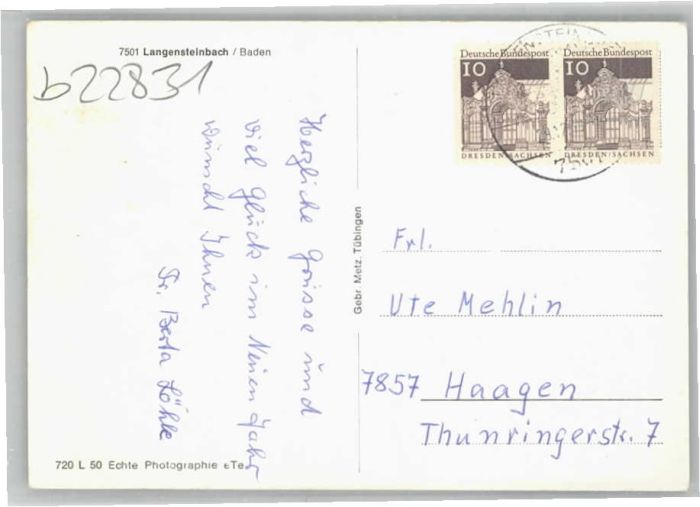 7501 Langensteinbach / Baden
b22831
Herzliche Grüsse und
viel Glück im Neuen Jahr
wünscht Ihnen
Fr. Berta Löhle
720 L 50 Echte Photographie
Gebr. Metz, Tübingen
Deutsche Bundespost
10
DRESDEN/SACHSEN
Deutsche Bundespost
10
DRESDEN/SACHSEN
Frl.
Ute Mehlin
7857 Haagen
Thunringerstr. 7